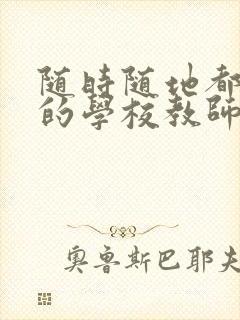 随時随地都
的學校教師
奥魯斯巴耶夫